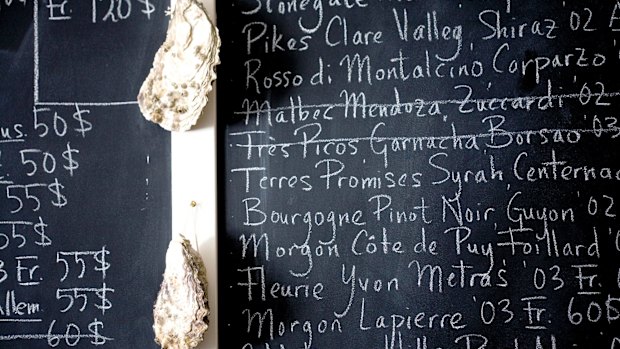 Fr. 120$
us. 50$
50$
55$
55$
3 Fr. 55$
Allem. 55$
60$
Stonegate
Pikes Clare Valley Shiraz '02 A
Rosso di Montalcino Corparzo
Malbec Mendoza Zuccardi '02
Très Picos Garnacha Borsao '03
Terres Promises Syrah, Centernac
Bourgogne Pinot Noir, Guyon '02
Morgon Côte de Puy Foillard '0
Fleurie Yvon Metras '03 Fr. 60$
Morgon Lapierre '03 Fr. 60$